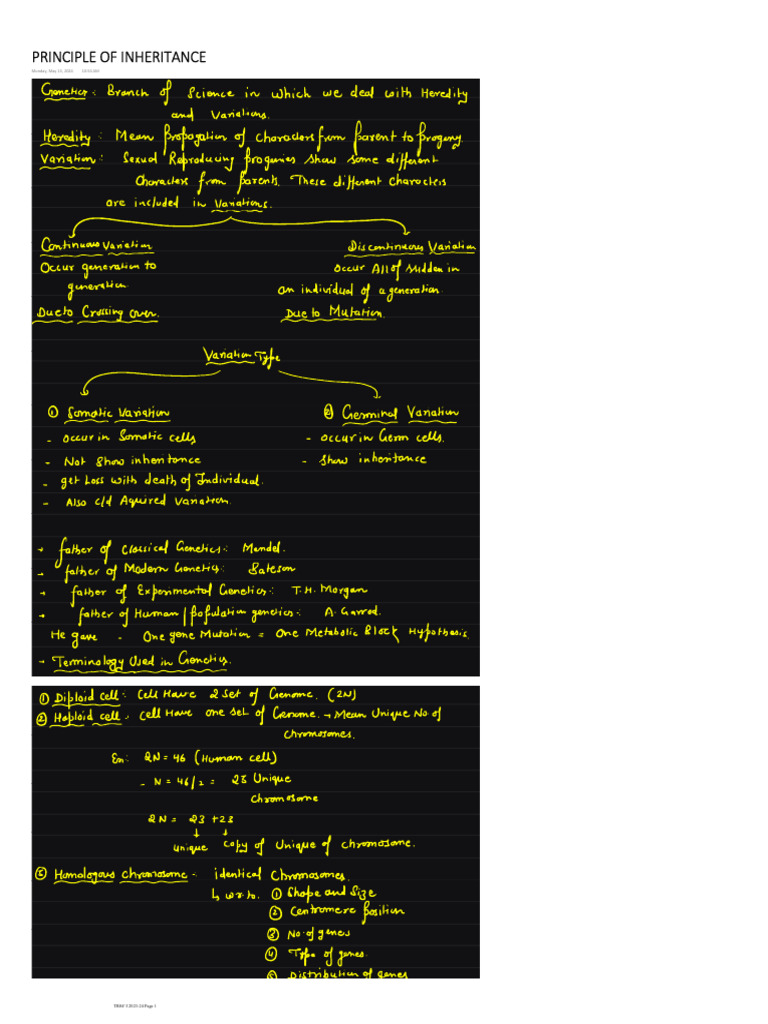 PRINCIPLE OF INHERITANCE
Genetics : Branch of Science in which we deal with Heredity
and Variations.
Heredity : Mean Propagation of Characters from Parent to Progeny.
Variation : Sexual Reproducing Progenies show some different
Characters from Parents. These different Characters
are included in Variations.
Continuous Variation
Discontinuous Variation
Occur generation to
occur All of sudden in
generation.
an individual of a generation.
Due to Crossing over.
Due to Mutation.
Variation Type
① Somatic Variation
② Germinal Variation
- occur in Somatic cells
- occur in Germ cells.
- Not Show inheritance
- Show inheritance
- get Loss with death of Individual.
- Also c/d Aquired Variation.
→ father of Classical Genetics : Mendel.
→ father of Modern Genetics : Bateson
→ father of Experimental Genetics : T.H. Morgan
→ father of Human / population genetics : A. Garrod.
He gave - One gene Mutation = One Metabolic Block Hypothesis.
→ Terminology Used in Genetics.
① Diploid cell : Cell Have 2 set of Genome. (2N)
② Haploid cell : Cell Have one set of Genome. → Mean Unique No of
Chromosomes.
Ex: 2N = 46 (Human cell)
- N = 46/2 = 23 Unique
Chromosome
2N = 23 + 23
unique copy of Unique of chromosome.
③ Homologous Chromosome - identical Chromosomes.
↳ w.r.to. ① Shape and Size
② Centromere Position
③ No. of genes
④ Type of genes.
⑤ Distribution of genes